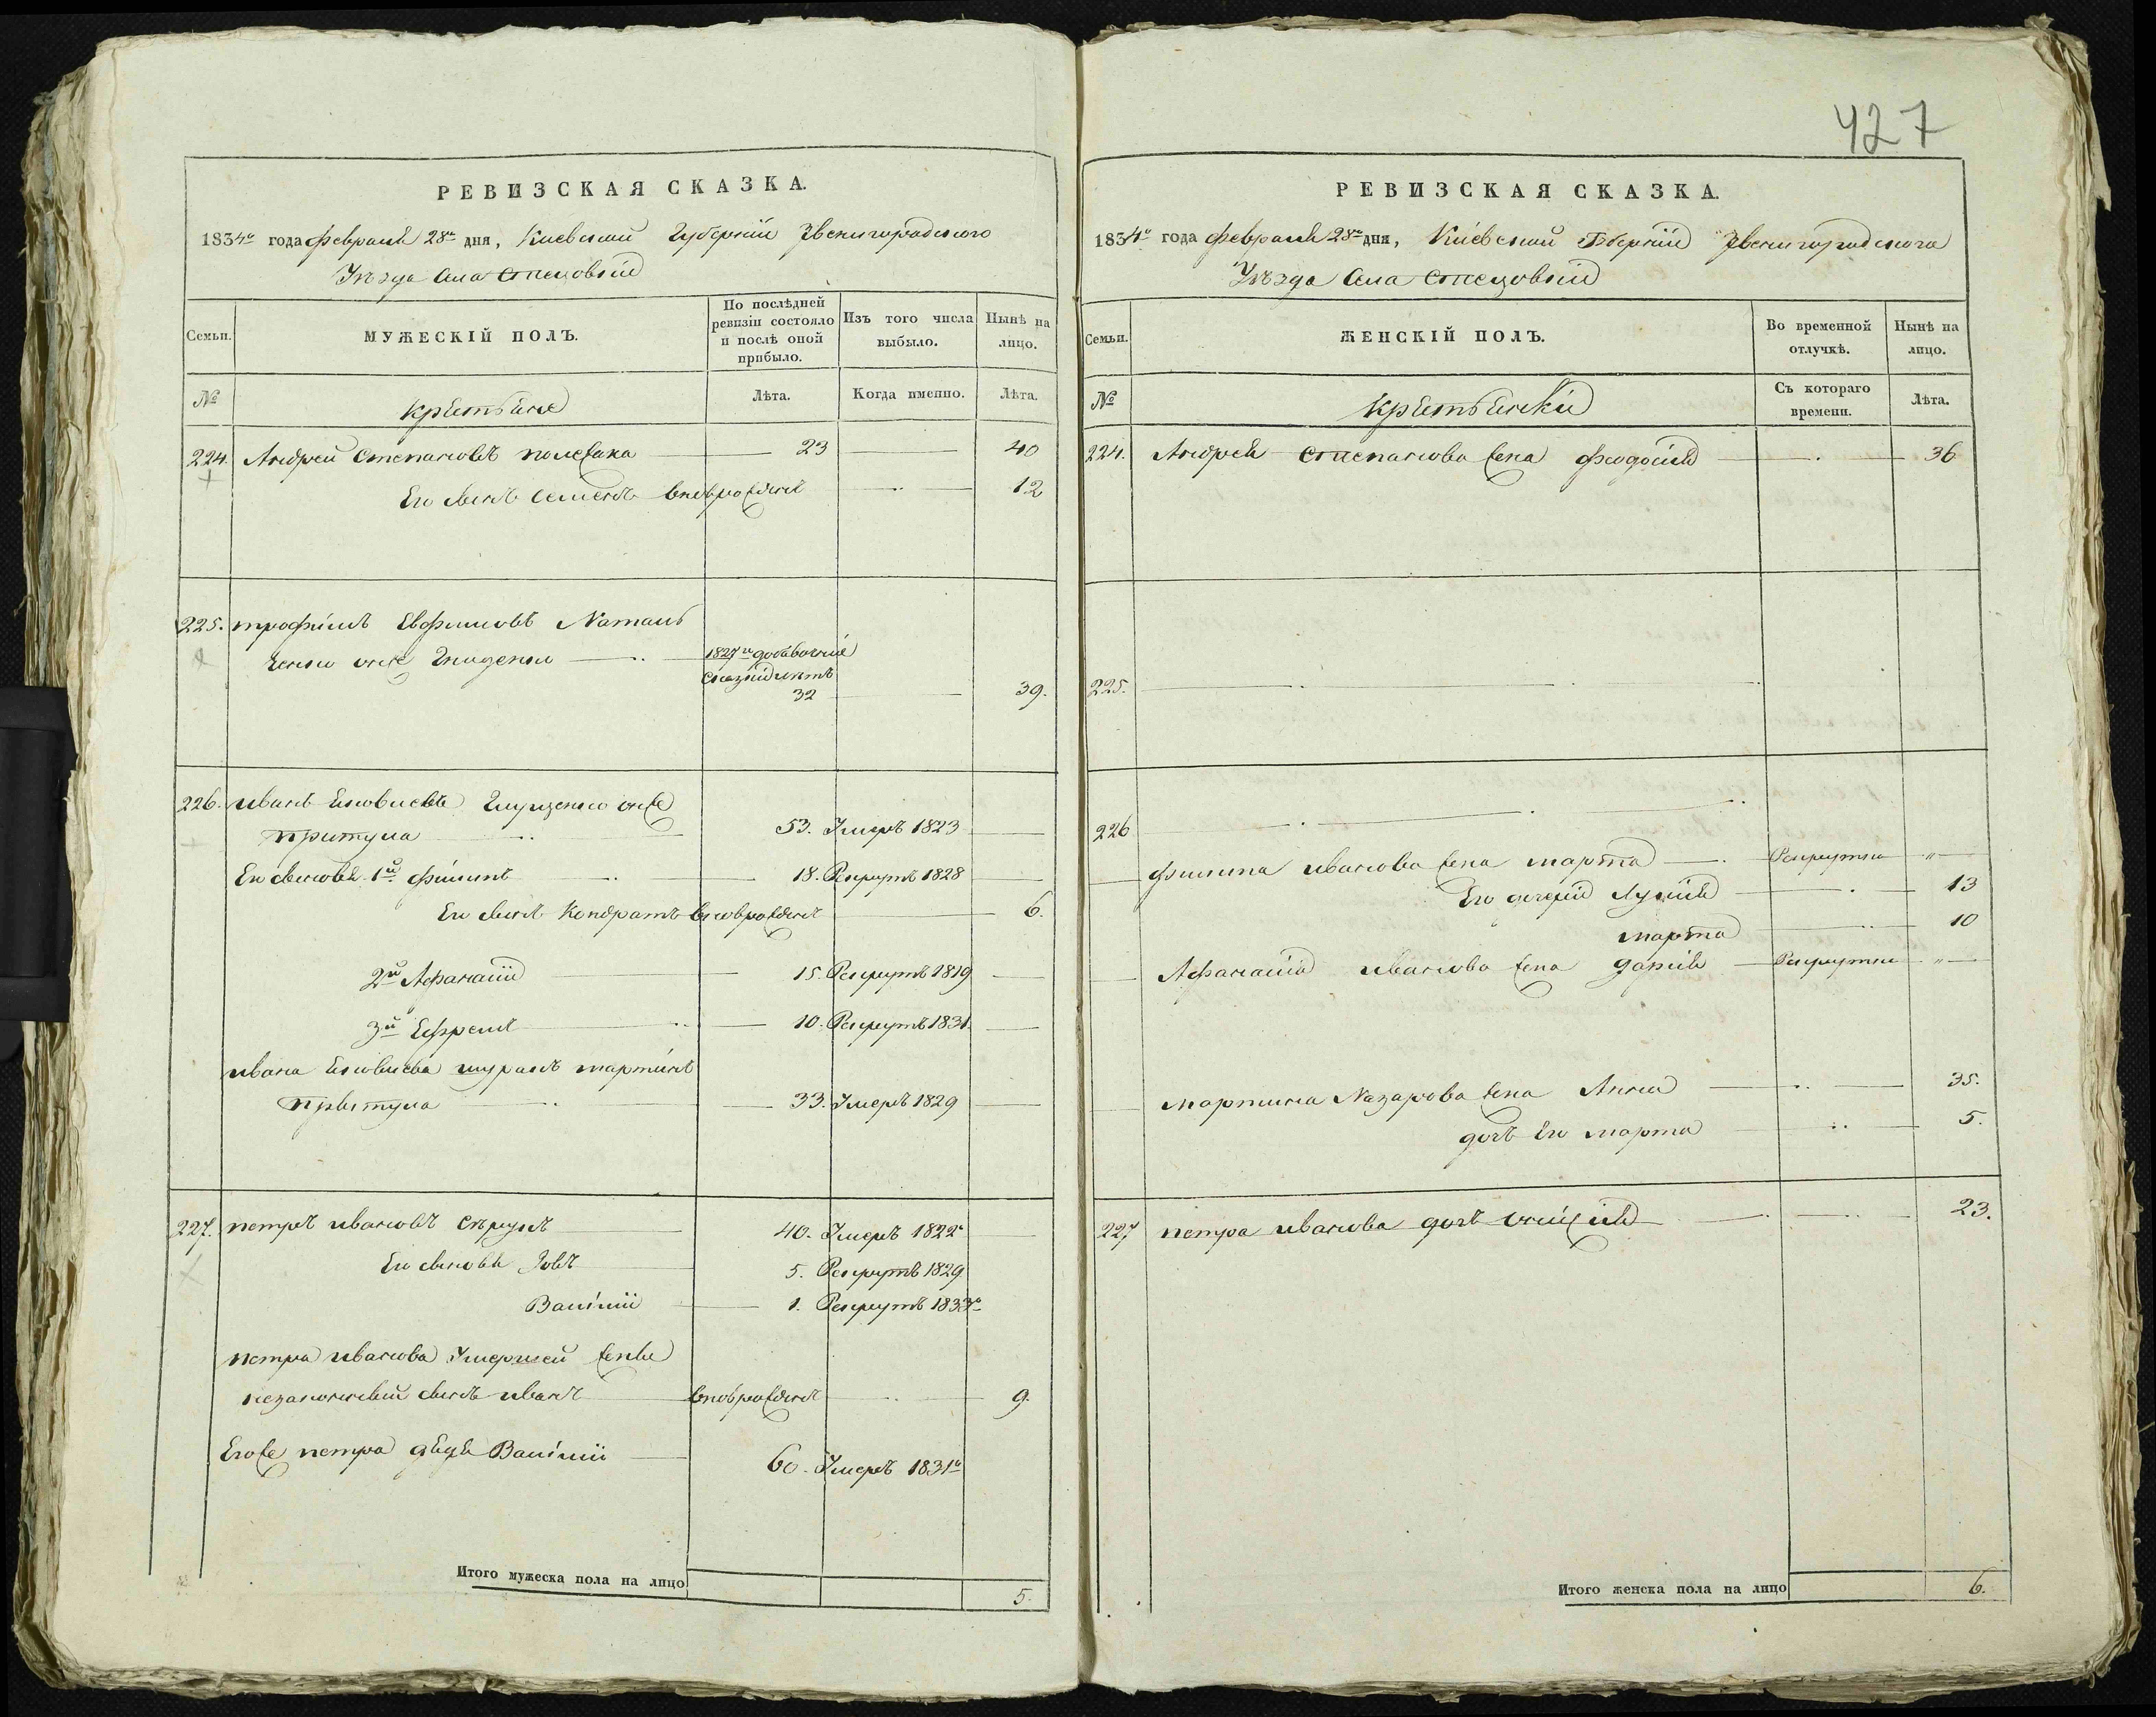 427
РЕВИЗСКАЯ СКАЗКА.
1834го года февраля 28го дня, Киевской Губернии Звенигородского
Уѣзда Села
Семьи.
МУЖЕСКІЙ ПОЛЪ.
По послѣдней ревизіи состояло и послѣ оной прибыло.
Изъ того числа выбыло.
Нынѣ на лицо.
№
крестьяне
Лѣта.
Когда именно.
Лѣта.
224. Андрей Степановъ 23 40
Его сынъ Семенъ вновърожденъ 12
225. трофимъ Евфимовъ
онже 1827го
сказки лѣтъ
32 39.
226. иванъ онже
притула 53. Умеръ 1823
Его сыновья 1й филипъ 18. Рекрутъ 1828
Его сынъ Кондратъ вновърожденъ 6.
2й Афанасій 15. Рекрутъ 1819
3й Ефремъ 10. Рекрутъ 1831.
ивана шуринъ мартинъ
притула 33. Умеръ 1829
227. петръ ивановъ 40. Умеръ 1822го
Его сыновья Іовъ 5. Рекрутъ 1829
Василий 1. Рекрутъ 1833го
петра иванова Умершей жены
незаконный сынъ иванъ вновърожденъ 9.
Егоже петра дядя Василий 60. Умеръ 1831го
Итого мужеска пола на лицо 5.
РЕВИЗСКАЯ СКАЗКА.
1834го года февраля 28го дня, Киевской Губернии Звенигородского
Уѣзда Села
Семьи.
ЖЕНСКІЙ ПОЛЪ.
Во временной отлучкѣ.
Нынѣ на лицо.
№
крестьянки
Съ котораго времени.
Лѣта.
224. Андрея Степанова жена феодосия 36
225.
226
филипа иванова жена марта Рекрутка "
Его дочери 13
марта 10
Афанасия иванова жена дария Рекрутка "
мартина Назарова жена Анна 35.
дочь Его марта 5.
227 петра иванова дочь 23.
Итого женска пола на лицо 6.